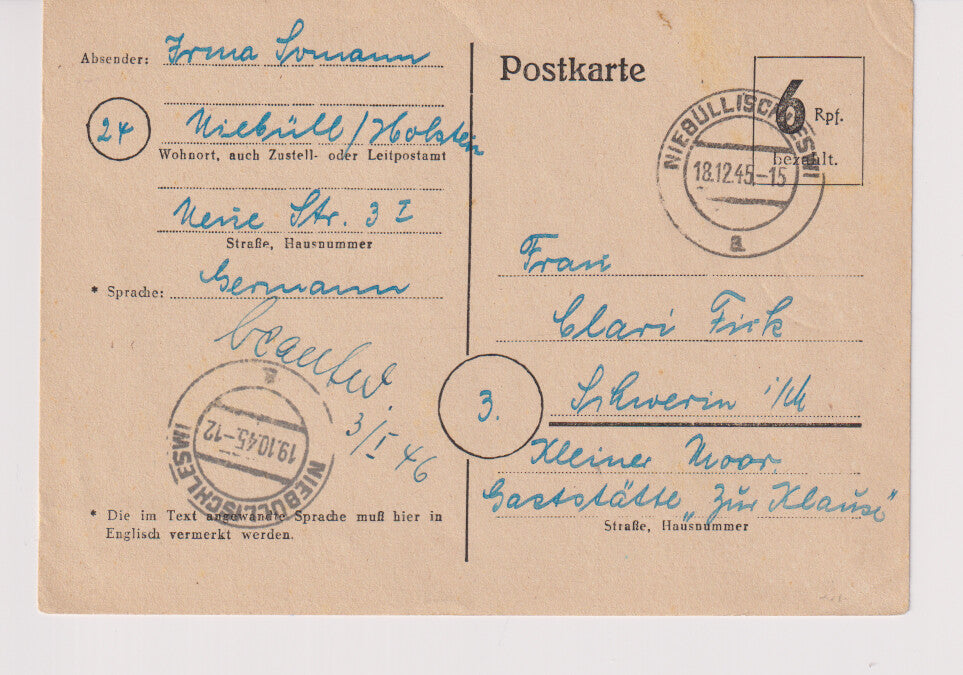 Absender: Irma Somann
24 Niebüll/Holstein
Wohnort, auch Zustell- oder Leitpostamt
Neue Str. 3 I
Straße, Hausnummer
* Sprache: Germann
beantw.
3/I 46
19.10.45-12
NIEBÜLL (SCHLESW)
a
* Die im Text angewandte Sprache muß hier in
Englisch vermerkt werden.
Postkarte
6 Rpf.
bezahlt.
NIEBÜLL (SCHLESW)
18.12.45-15
a
Frau
Clari Fick
3. Schwerin i/M
Kleiner Moor
Gaststätte „Zur Klause"
Straße, Hausnummer